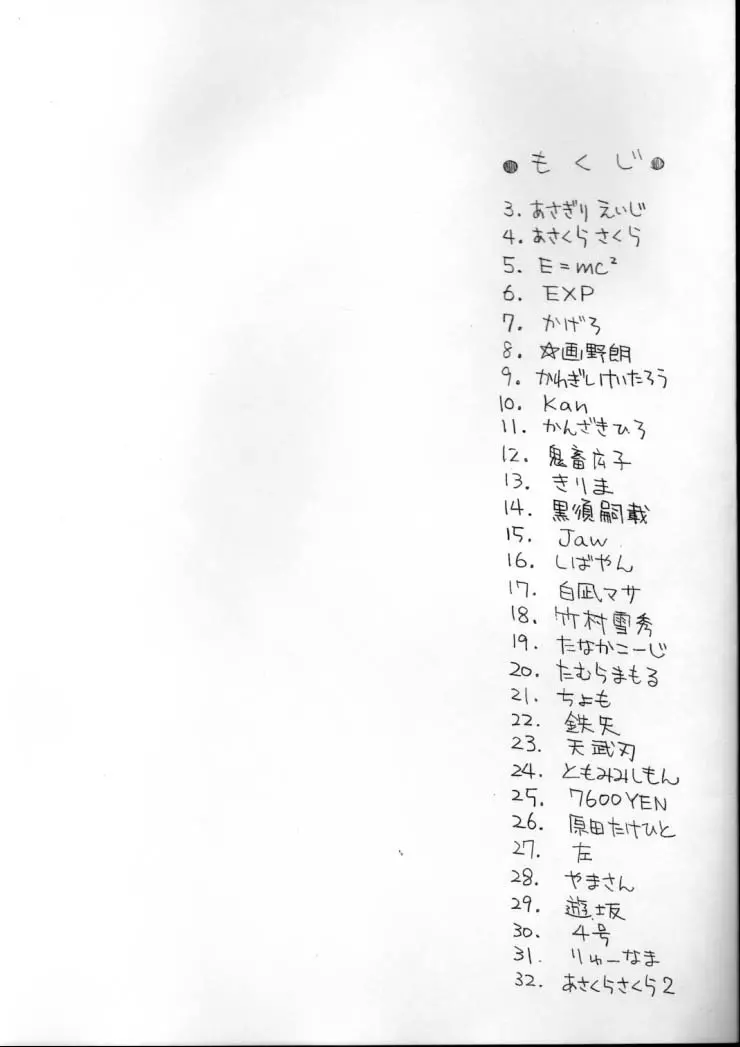 ●もくじ●
3. あさぎりえいじ
4. あさくらさくら
5. E=mc²
6. EXP
7. かげろ
8. ☆画野朗
9. かわぎしけいたろう
10. Kan
11. かんざきひろ
12. 鬼畜広子
13. きりま
14. 黒須嗣載
15. Jaw
16. しばやん
17. 白凪マサ
18. 竹村雪秀
19. たなかこーじ
20. たむらまもる
21. ちょも
22. 鉄矢
23. 天武刃
24. ともみみしもん
25. 7600YEN
26. 原田たけひと
27. 左
28. やまさん
29. 遊坂
30. 4号
31. りゅーなま
32. あさくらさくら2